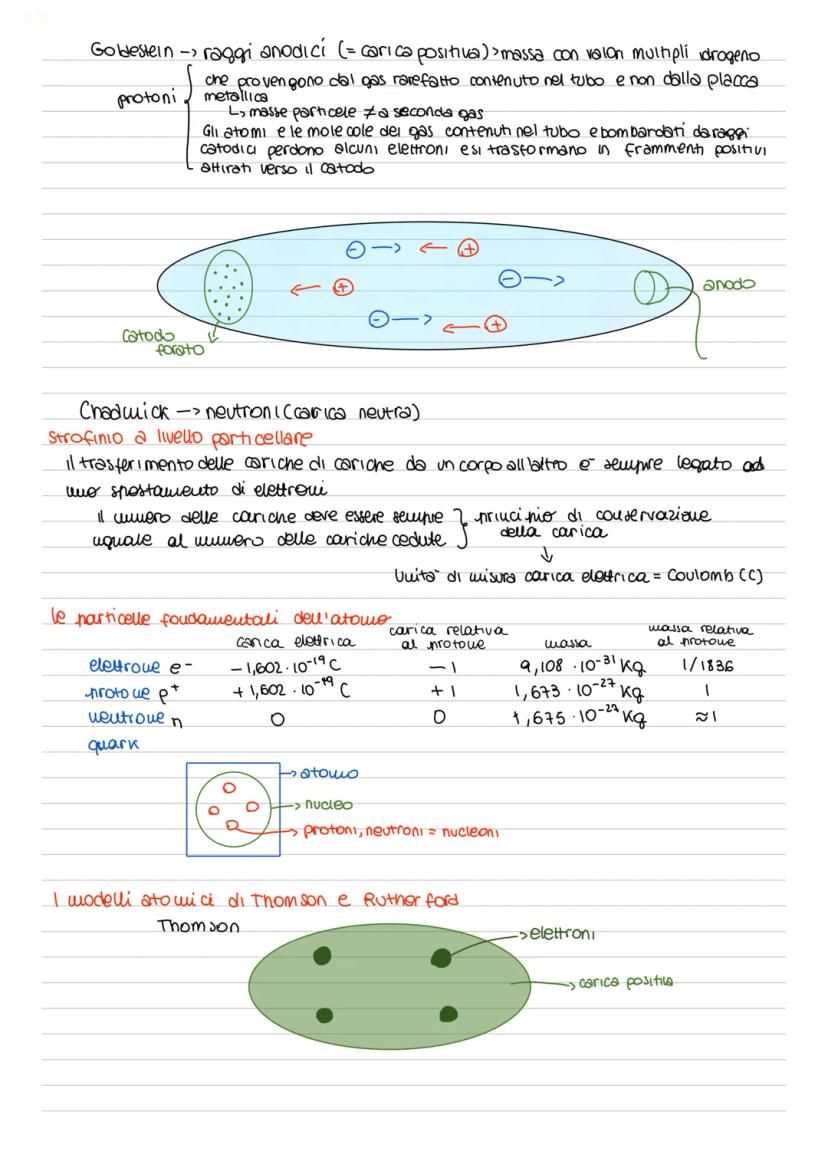 Goldestein -> raggi anodici (= carica positiva) > massa con valori multipli idrogeno
protoni
che provengono dal gas rarefatto contenuto nel tubo e non dalla placca
metallica
↳ masse particele ≠ a seconda gas
Gli atomi e le molecole dei gas contenuti nel tubo e bombardati da raggi
catodici perdono alcuni elettroni e si trasformano in frammenti positivi
attirati verso il catodo
- → ← +
← + - → anodo
- → ← +
catodo
forato
Chadwick -> neutroni (carica neutra)
strofinio a livello particellare
il trasferimento delle cariche di cariche da un corpo all'altro e- sempre legato ad
uno spostamento di elettroni
il numero delle cariche deve essere sempre } principio di conservazione
uguale al numero delle cariche cedute } della carica
↓
Unita- di misura carica elettrica = Coulomb (C)
le particelle foudamentali dell'atomo
carica elettrica carica relativa al protone massa massa relativa al protone
elettrone e- -1,602·10⁻¹⁹ C -1 9,108·10⁻³¹ kg 1/1836
protone p⁺ +1,602·10⁻¹⁹ C +1 1,673·10⁻²⁷ kg 1
neutrone n 0 0 1,675·10⁻²⁷ kg ≈1
quark
→ atomo
→ nucleo
→ protoni, neutroni = nucleoni
I modelli atomici di Thomson e Rutherford
Thomson
→ elettroni
→ carica positiva